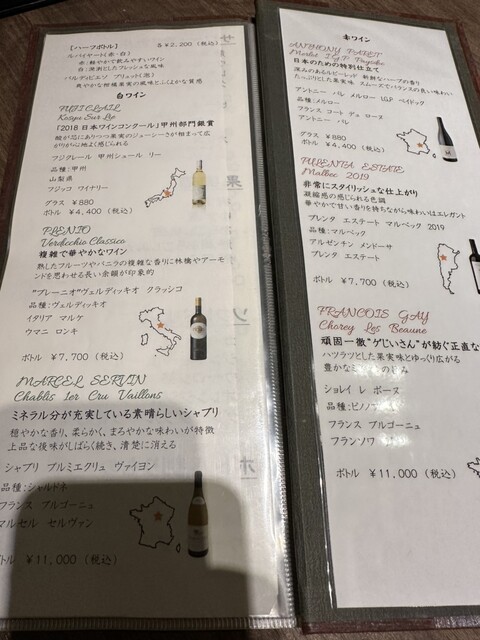 【ハーフボトル】 各￥2,200（税込）
ルバイヤート（赤・白）
赤：軽やかで飲みやすいワイン
白：溌剌としたフレッシュな風味
バルディビエソ ブリュット（泡）
爽やかな柑橘果実の風味とふくよかな質感
白ワイン
FUJICLAIR
Koshyu Sur Lie
「2018 日本ワインコンクール」甲州部門銀賞
酸が芯にありつつ果実のジューシーさが相まって広
がりがら地よく感じられる
フジクレール 甲州シュール リー
品種：甲州
山梨県
フジッコ ワイナリー
グラス ￥880
ボトル ￥4,400（税込）
PLENIO
Verdicchio Classico
複雑で華やかなワイン
熟したフルーツやバニラの複雑な香りに林檎やアーモ
ンドを思わせる長い余韻が印象的
"プレーニオ"ヴェルディッキオ クラッシコ
品種：ヴェルディッキオ
イタリア マルケ
ウマニ ロンキ
ボトル ￥7,700（税込）
MARCEL SERVIN
Chablis 1er Cru Vaillons
ミネラル分が充実している素晴らしいシャブリ
穏やかな香り、柔らかく、まろやかな味わいが特徴
上品な後味がしばらく続き、清楚に消える
シャブリ プルミエクリュ ヴァイヨン
品種：シャルドネ
フランス ブルゴーニュ
マルセル セルヴァン
ボトル ￥11,000（税込）
赤ワイン
ANTHONY PARET
Merlot I.G.P Paysdoc
日本のための特別仕立て
深みのあるルビーレッド 新鮮なハーブの香り
たっぷりとした果実味 スムーズでバランスの良い味わい
アントニー パレ メルロー I.G.P ペイドック
品種：メルロー
フランス コート デュ ローヌ
アントニー パレ
グラス ￥880
ボトル ￥4,400（税込）
PULENTA ESTATE
Malbec 2019
非常にスタイリッシュな仕上がり
凝縮感の感じられる色調
華やかで甘い香りを持ちながら味わいはエレガント
プレンタ エステート マルベック 2019
品種：マルベック
アルゼンチン メンドーサ
プレンタ エステート
ボトル ￥7,700（税込）
FRANCOIS GAY
Chorey Les Beaune
頑固一徹"ゲじいさん"が紡ぐ正直な
ハツラツとした果実味とゆっくり広がる
豊かな
ショレイ レ ボーヌ
品種：ピノ
フランス ブルゴーニュ
フランソワ
ボトル ￥11,000（税込）